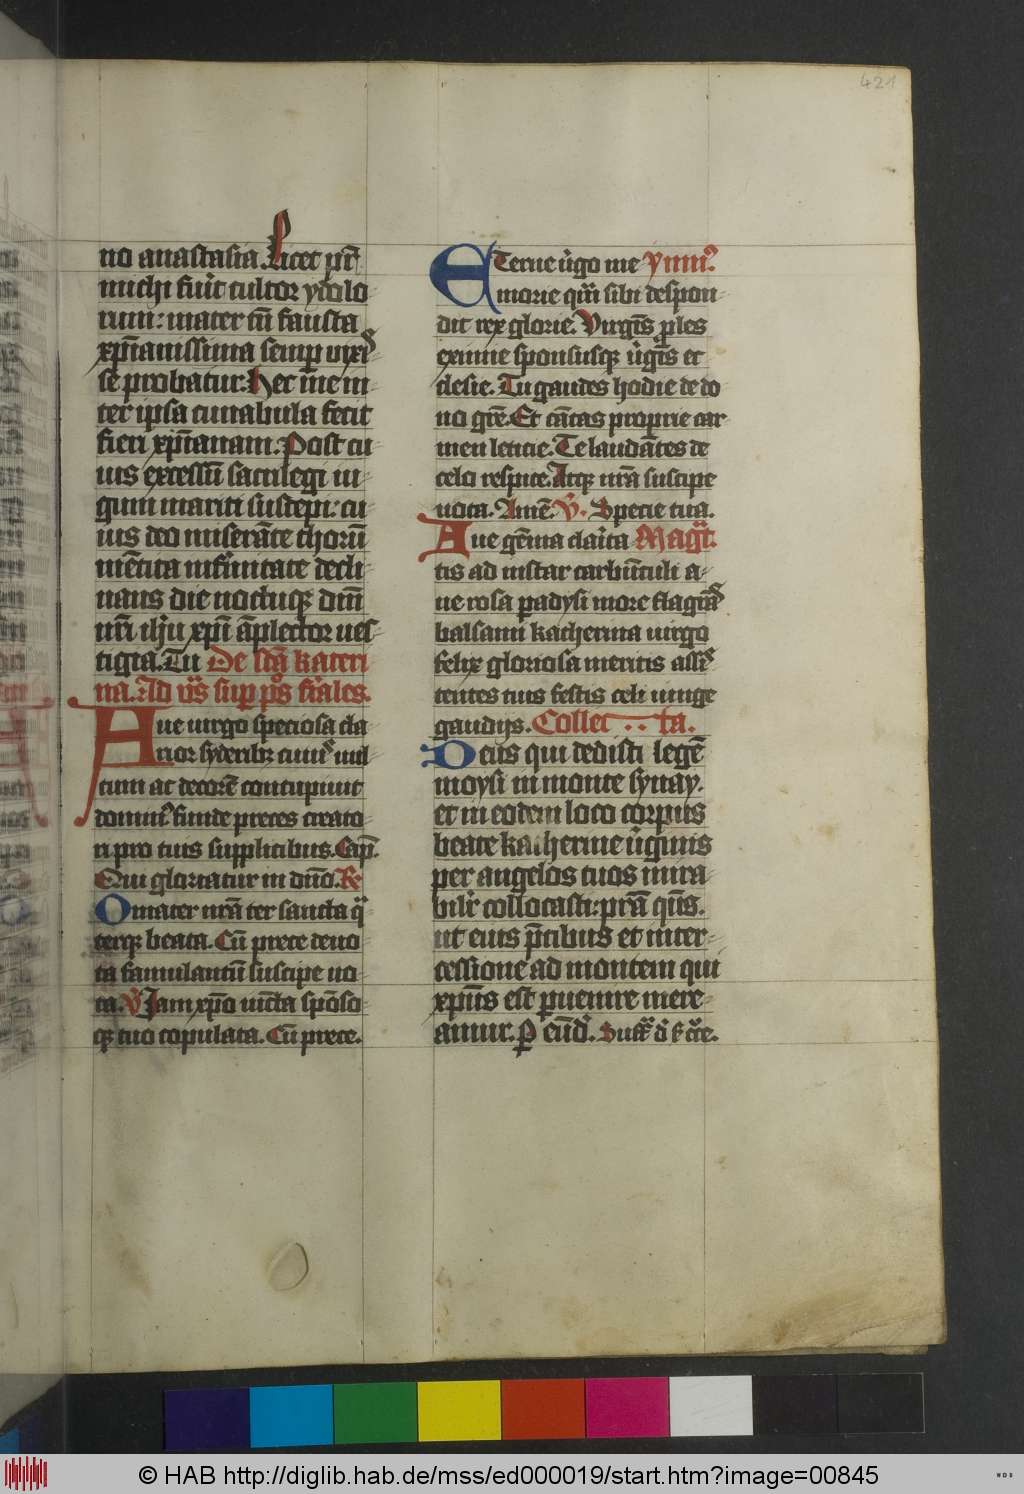 421
no anastasia. Licet pr̄
michi fuīt cultor ydolo
rum: mater tn̄ fausta
xp̄ianissima semꝑ vixis
se probatur. Hec me in
ter ipsa cunabula fecit
fieri xp̄ianam: Post cu
ius excessū sacrilegi iu
gum mariti suscepi: cu
ius deo miserāte thorū
mētita infirmitate decli
naus die noctuqꝫ dn̄i
nr̄i ih̄u xp̄i āplector ues
tigia. Tu De scā kateri
na. Ad vs̄ suꝑ ps̄ fr̄iales.
Aue uirgo speciosa cla
rior syderibꝫ cuius uul
tum ac decorē concupiuit
dominus funde preces creato
ri pro tuis supplicibus. Cap̄.
Qui gloriatur in dn̄o. R
O mater nr̄a ter sancta q̄
terqꝫ beata. Cū prece deuo
ta famulantū suscipe uo
ta. V̄ Jam xp̄o uincta spōso
qꝫ tuo copulata. Cū prece.
ETerne v̄go me Ymnus.
morie qm̄ sibi despon
dit rex glorie. Virginis ꝓles
eximie sponsusqꝫ v̄ginis et
clesie. Tu gaudes hodie de do
no grē. Et cātas proprie car
men leticie. Te laudātes de
celo respice. Atqꝫ nr̄a suscipe
uota. Amē. V̄. Specie tua.
Aue gēma claīta Magt̄.
tis ad instar carbūculi a
ue rosa padysi more flagrās
balsami katherina uirgo
felix gloriosa meritis assis
tentes tuis festis celi iunge
gaudijs. Collec..ta.
Deus qui dedisti legē
moysi in monte synay.
et in eodem loco corpus
beate katherine v̄ginis
per angelos tuos mira
bilit̄ collocasti: prā qs̄.
ut eius p̄cibus et inter
cessione ad montem qui
xp̄us est ꝑuenire mere
amur. P eūd̄. Suff̄
© HAB http://diglib.hab.de/mss/ed000019/start.htm?image=00845